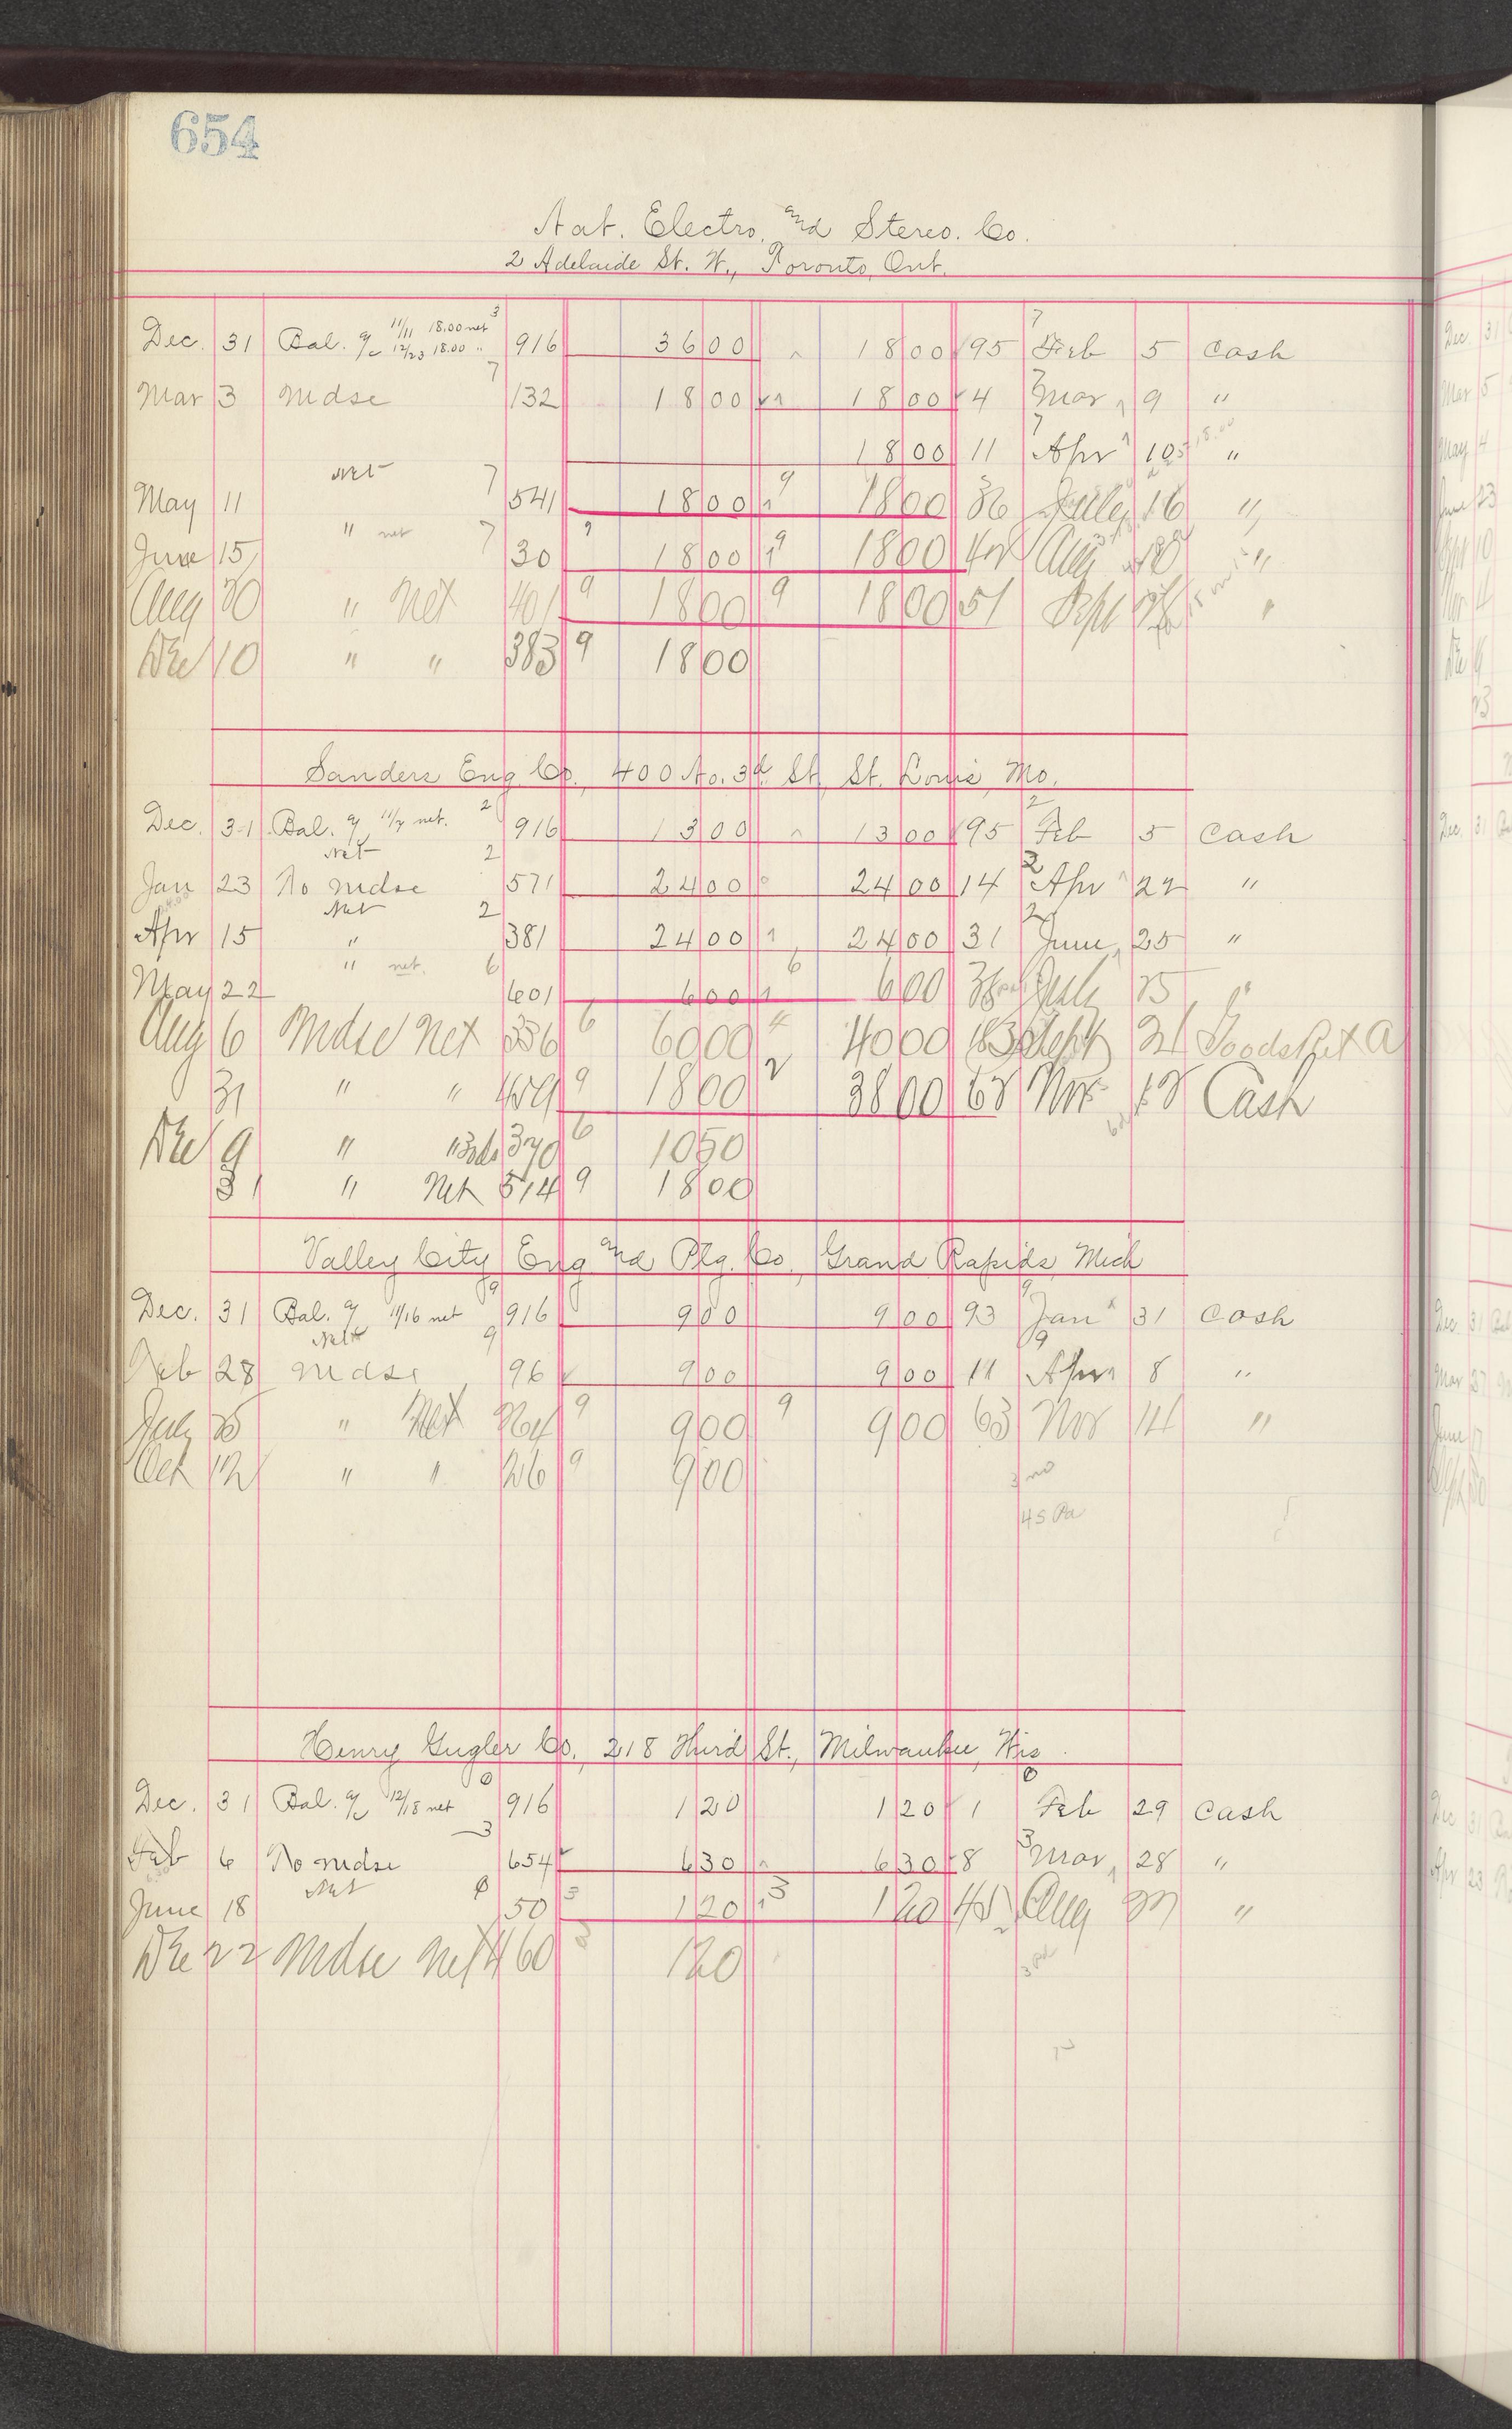 654
Nat. Electro. and Stereo. Co.
2 Adelaide St. W., Toronto, Ont.
Dec. 31 Bal. a/c 11/11 18.00 net 12/23 18.00 " 3 916 3600 1800 95 7 Feb 5 Cash
Mar 3 Mdse 7 132 1800 1800 4 7 Mar 9 "
1800 11 7 Apr 10 "
May 11 Net 7 541 1800 9 1800 36 July 16 "
June 15 " net 7 30 9 1800 9 1800 Aug "
Aug 30 " Net 401 9 1800 9 1800 51 Sept "
Dec 10 " " 383 9 1800
Sanders Eng. Co., 400 No. 3d St., St. Louis, Mo.
Dec. 31 Bal. a/c 11/7 net. 2 916 1300 1300 95 2 Feb 5 Cash
Jan 23 To Mdse Net 2 571 2400 2400 14 2 Apr 22 "
Apr 15 " Net 2 381 2400 2400 31 2 June 25 "
May 22 " net. 6 601 600 6 600 July 25 "
Aug 6 Mdse Net 336 6 6000 4 4000 183 Sept 21 Goods Ret
31 " " 459 9 1800 2 3800 68 Nov 18 Cash
Dec 9 " 370 6 1050
31 " Net 514 9 1800
Valley City Eng. and Ptg. Co., Grand Rapids, Mich
Dec. 31 Bal. a/c 11/16 net 9 916 900 900 93 9 Jan 31 Cash
Feb 28 Mdse Net 9 96 900 900 11 9 Apr 8 "
July 25 " Net 264 9 900 9 900 63 Nov 14 "
Oct 12 " " 26 9 900
Henry Gugler Co., 218 Third St., Milwaukee, Wis.
Dec. 31 Bal. a/c 12/18 net 0 916 120 120 1 0 Feb 29 Cash
Feb 6 To Mdse 3 654 630 630 8 3 Mar 28 "
June 18 Net 0 50 3 120 3 120 45 Aug "
Dec 22 Mdse Net 460 120